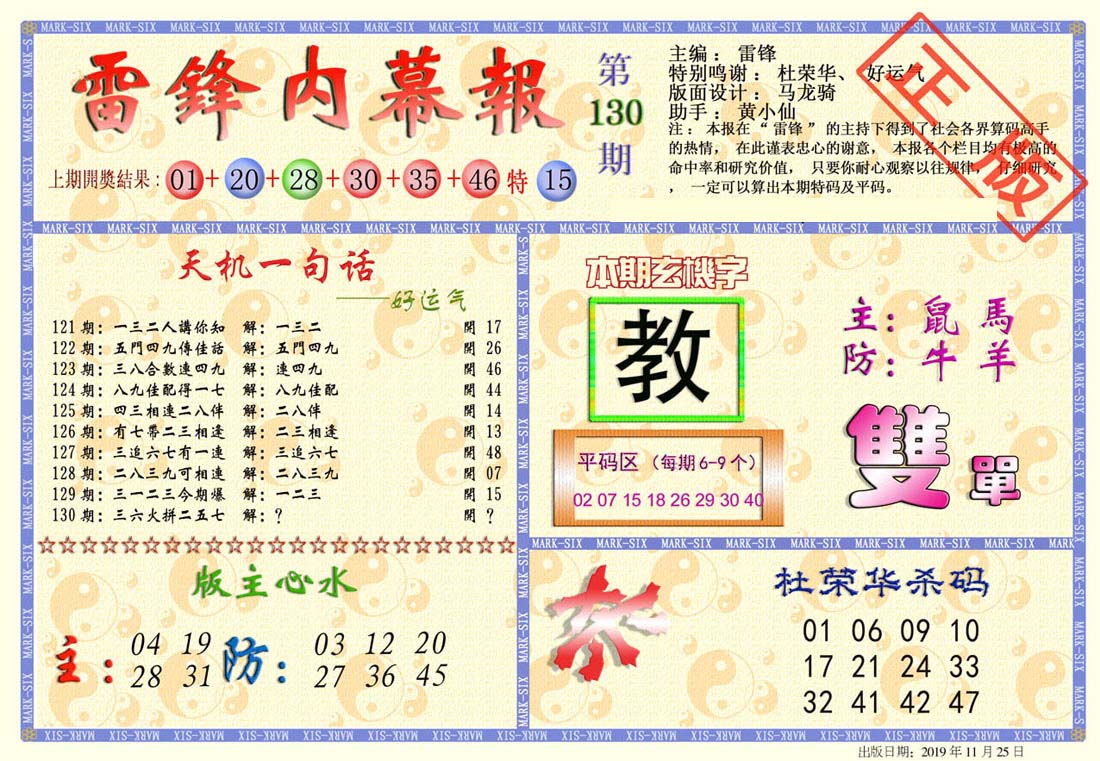 雷鋒内幕報
第130期
主编： 雷锋
特别鸣谢： 杜荣华、 好运气
版面设计： 马龙骑
助手： 黄小仙
注： 本报在“雷锋” 的主持下得到了社会各界算码高手
的热情， 在此谨表忠心的谢意， 本报各个栏目均有极高的
命中率和研究价值， 只要你耐心观察以往规律， 仔细研究
， 一定可以算出本期特码及平码。
正版
上期開獎結果：01+20+28+30+35+46特15
天机一句话
——好运气
121期：一三二人講你知 解：一三二 開 17
122期：五門四九傳佳話 解：五門四九 開 26
123期：三八合數連四九 解：連四九 開 46
124期：八九佳配得一七 解：八九佳配 開 44
125期：四三相連二八伴 解：二八伴 開 14
126期：有七帶二三相逢 解：二三相逢 開 13
127期：三追六七有一連 解：三追六七 開 48
128期：二八三九可相連 解：二八三九 開 07
129期：三一二三今期爆 解：一二三 開 15
130期：三六火拼二五七 解：？ 開 ？
☆☆☆☆☆☆☆☆☆☆☆☆☆☆☆☆☆☆☆☆☆☆☆
版主心水
主：
04 19
28 31
防：
03 12 20
27 36 45
本期玄機字
教
平码区（每期6-9个）
02 07 15 18 26 29 30 40
主：鼠 馬
防：牛 羊
雙 單
杀
杜荣华杀码
01 06 09 10
17 21 24 33
32 41 42 47
MARK-SIX
出版日期：2019年11月25日